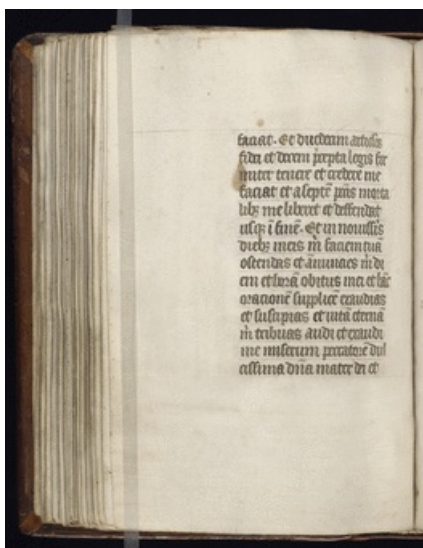 faciat. Et duodecim articulos
fidei et decem p̄cepta legis fir
miter tenere et credere me
faciat et a septē pctīs morta
libꝫ me liberet et deffendat
usqꝫ ī finē. Et in nouissīs
diebꝫ meis m̄ faciem tuā
ostendas et ānuncies m̄ di
em et horā obitus mei et hāc
orationē supplicē exaudias
et suscipias et uitā eternā
m̄ tribuas audi et exaudi
me miserum peccatorē dul
cissima dn̄a mater dei et